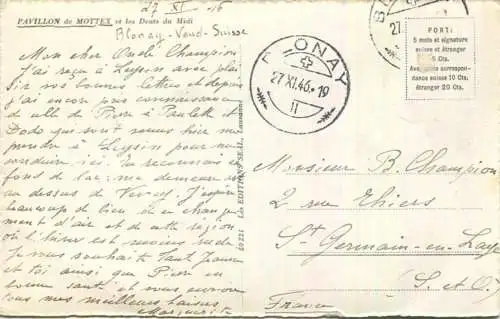 27 XI 46
PAVILLON de MOTTEX et les Dents du Midi
Blonay - Vaud - Suisse
Mon cher Oncle Champion,
J'ai reçu à Leysin avec plaisir
vos bonnes lettres et depuis
j'ai encore pris connaissance
de celle de Pierre à Paulette et
Dodo qui sont venus hier me
prendre à Leysin pour me
conduire ici. Tu reconnais le
fond du lac: me demeure ici
au dessus de Vevey. J'espère
beaucoup de bien de ce change
ment d'air et de cette région
où l'hiver est moins rude.
Je vous souhaite Tant Jeanne
et toi ainsi que Pierre en
bonne santé et vous envoie
tous mes meilleurs baisers
Marguerite
LES EDITIONS SEAL, Lausanne
BLONAY
27 XI.46.-19
11
BLO
27
PORT:
5 mots et signature
suisse et étranger
5 Cts.
Avec toute correspon-
dance suisse 10 Cts.
étranger 20 Cts.
Monsieur B. Champion
2 rue Thiers
St-Germain-en-Laye
(S. et O.)
France